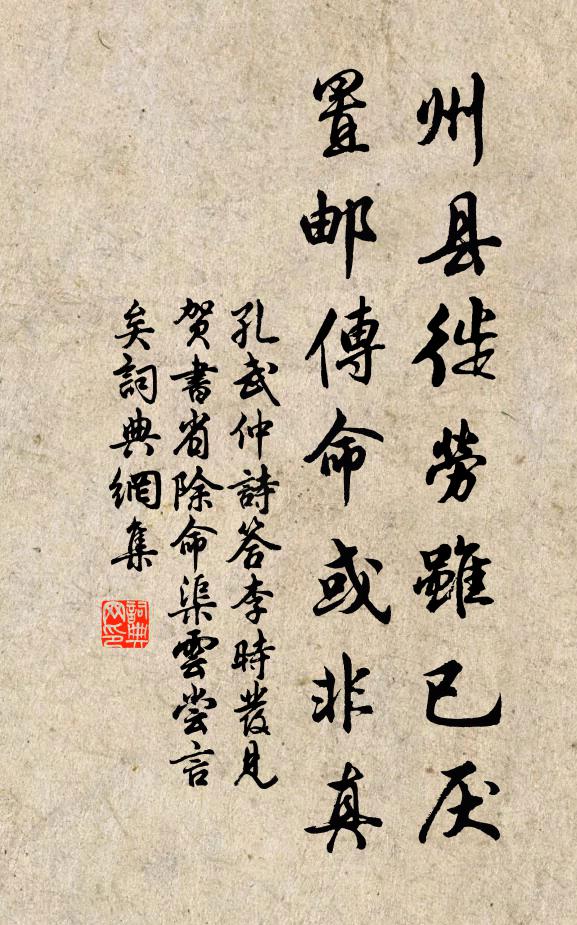 州县徙劳雖已厌
置邮傳命或非真
孔武仲詩答李時發見
贺書省除命渠雲尝言
矣詞典網集
詞典网印